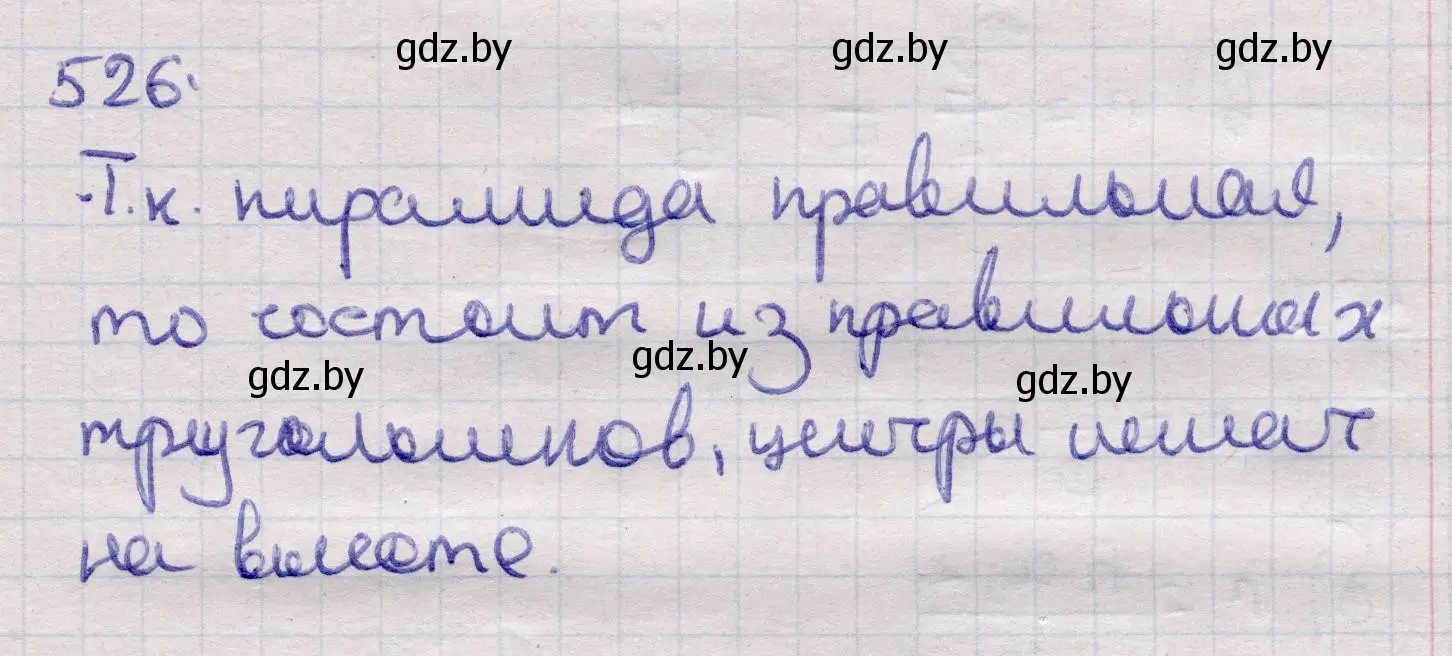 gdz.by gdz.by gdz.by
526.
Т.к. пирамида правильная,
то состоит из правильных
gdz.by gdz.by gdz.by
треугольников, центры лежат
на высоте.